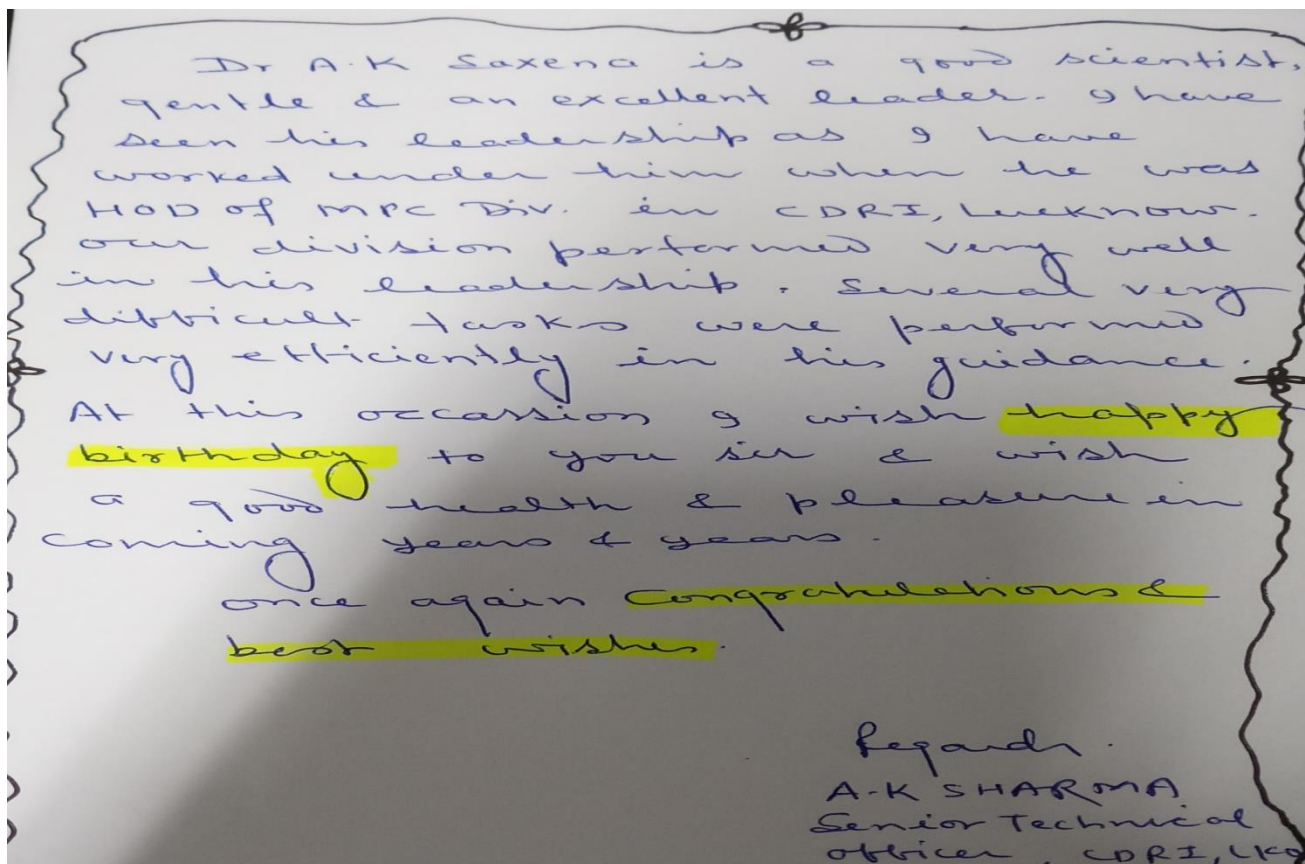 Dr A.K Saxena is a good scientist,
gentle & an excellent leader. I have
seen his leadership as I have
worked under him when he was
HOD of MPC Div. in CDRI, Lucknow.
our division performed very well
in his leadership. Several very
difficult tasks were performed
very efficiently in his guidance.
At this occassion I wish happy
birthday to you sir & wish
a good health & pleasure in
coming years & years.
once again Congratulations &
best wishes.
Regards.
A.K SHARMA
Senior Technical
officer, CDRI, LKO